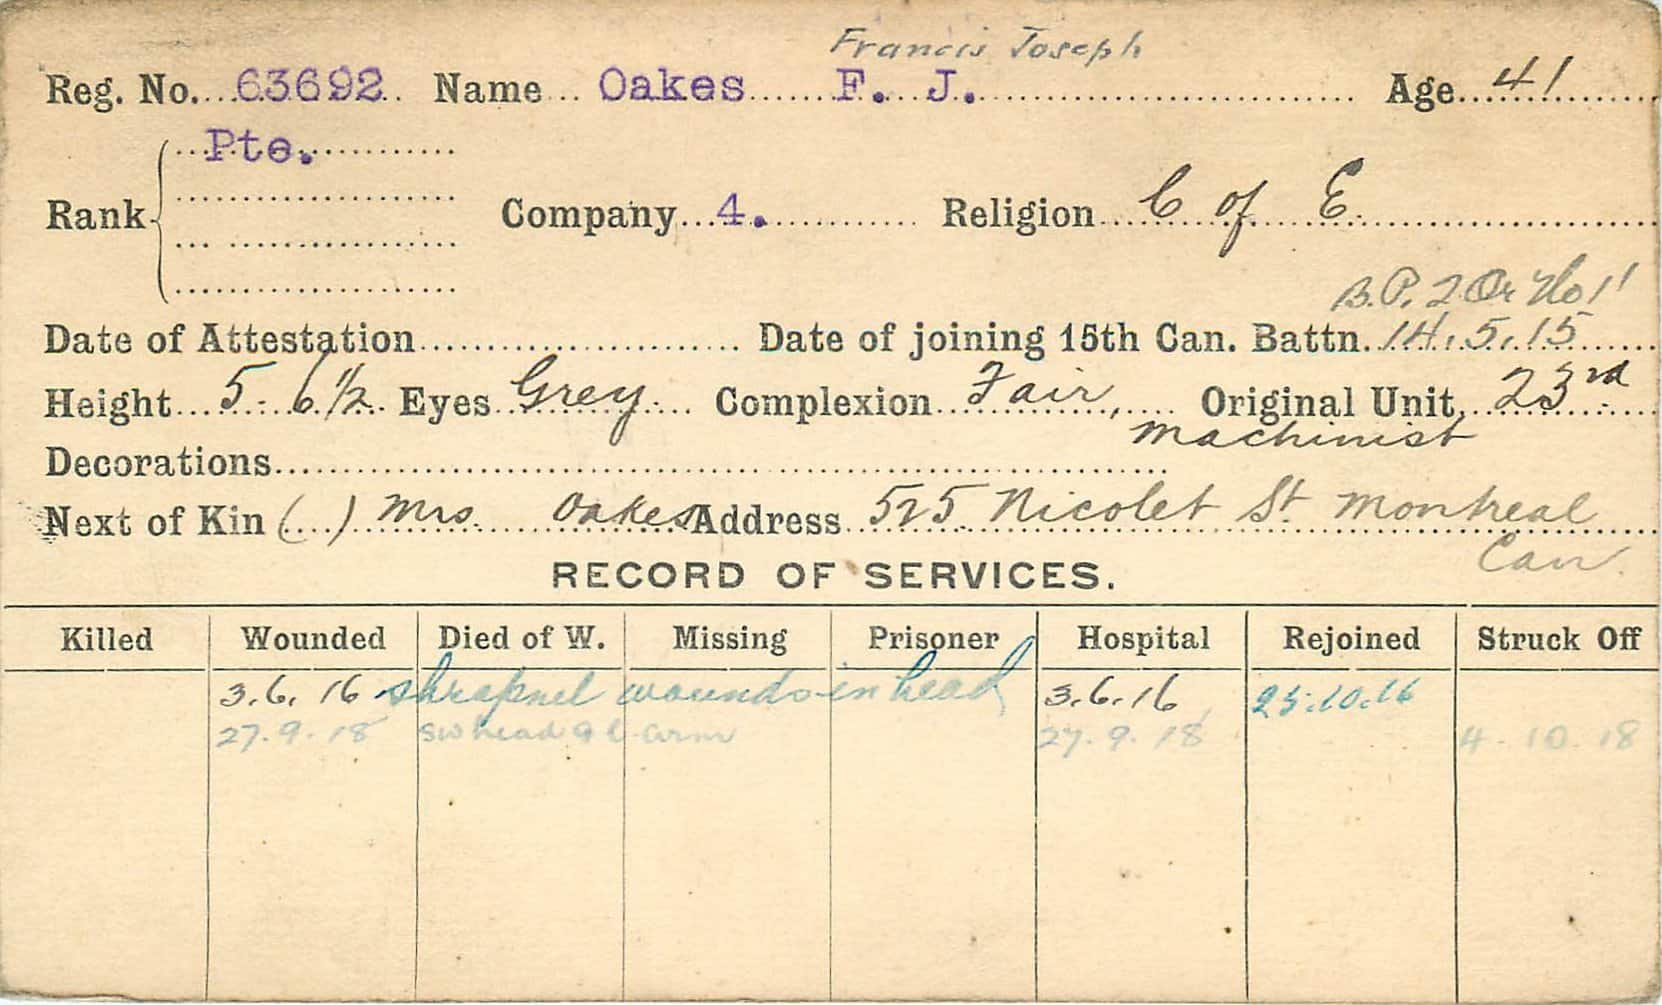 Francis Joseph
Reg. No. 63692 Name Oakes F. J. Age 41
Pte.
Rank Company 4. Religion C of E.
B.P. 2 Or No 1
Date of Attestation Date of joining 15th Can. Battn. 14.5.15
Height 5-6 1/2 Eyes Grey. Complexion Fair, Original Unit, 23rd
machinist
Decorations
Next of Kin ( ) Mrs. Oakes Address 525 Nicolet St. Montreal
Can.
RECORD OF SERVICES.
Killed Wounded Died of W. Missing Prisoner Hospital Rejoined Struck Off
3.6.16 shrapnel wounds in head 3.6.16 25.10.16
27.9.18 SW head & l. arm 27.9.18 4.10.18